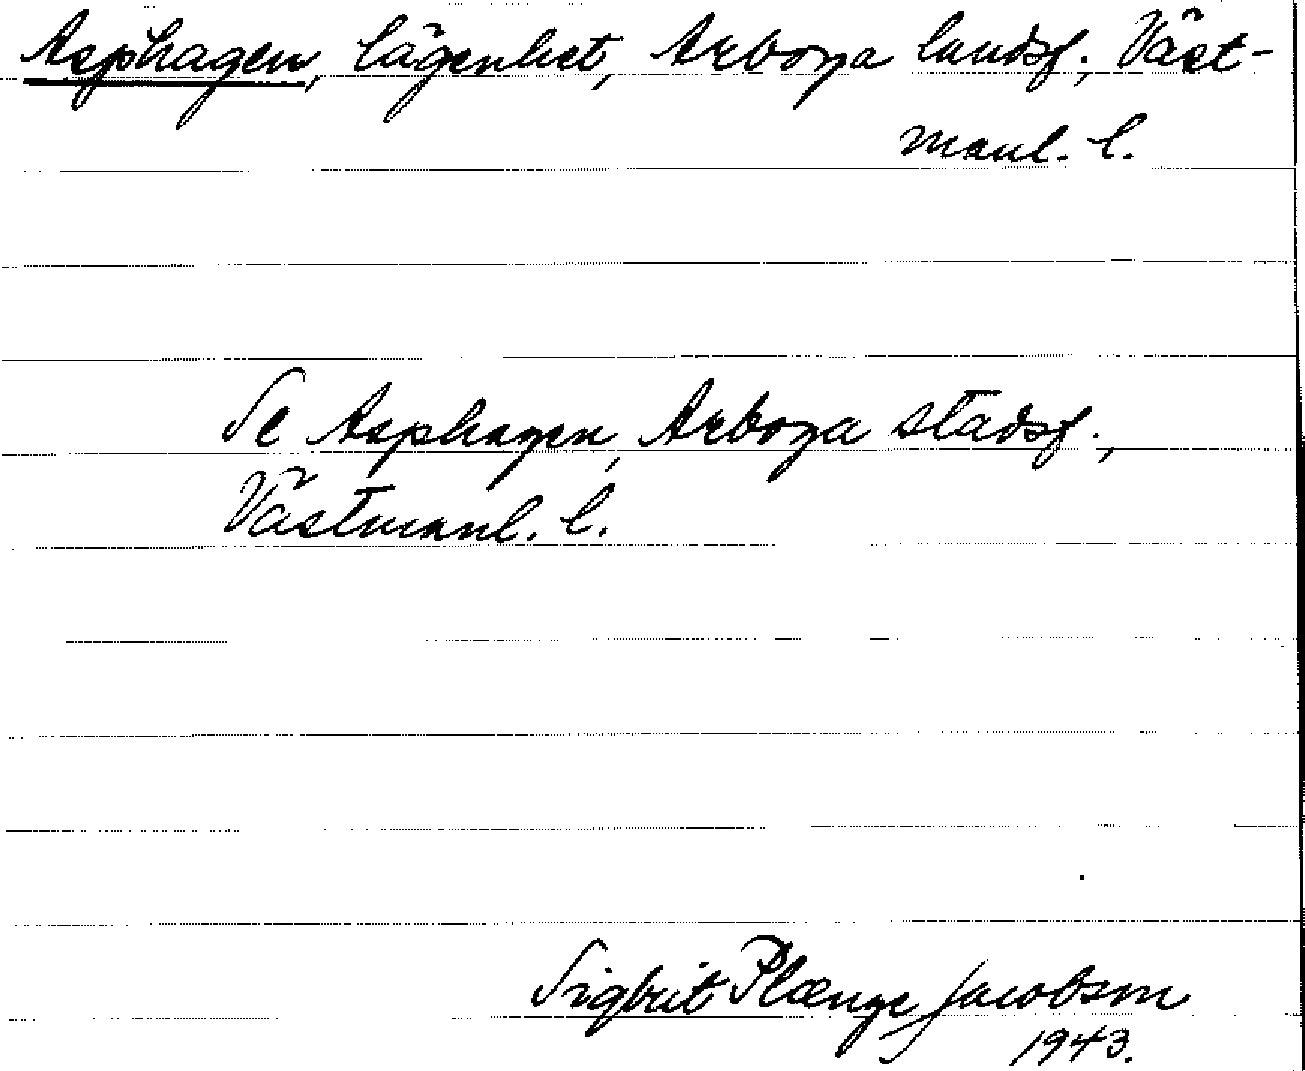 Asphagen, lägenhet, Arboga landsf., Väst-
manl. l.
Se Asphagen, Arboga stadsf.,
Västmanl. l.
Sigbrit Plænge Jacobson
1943.